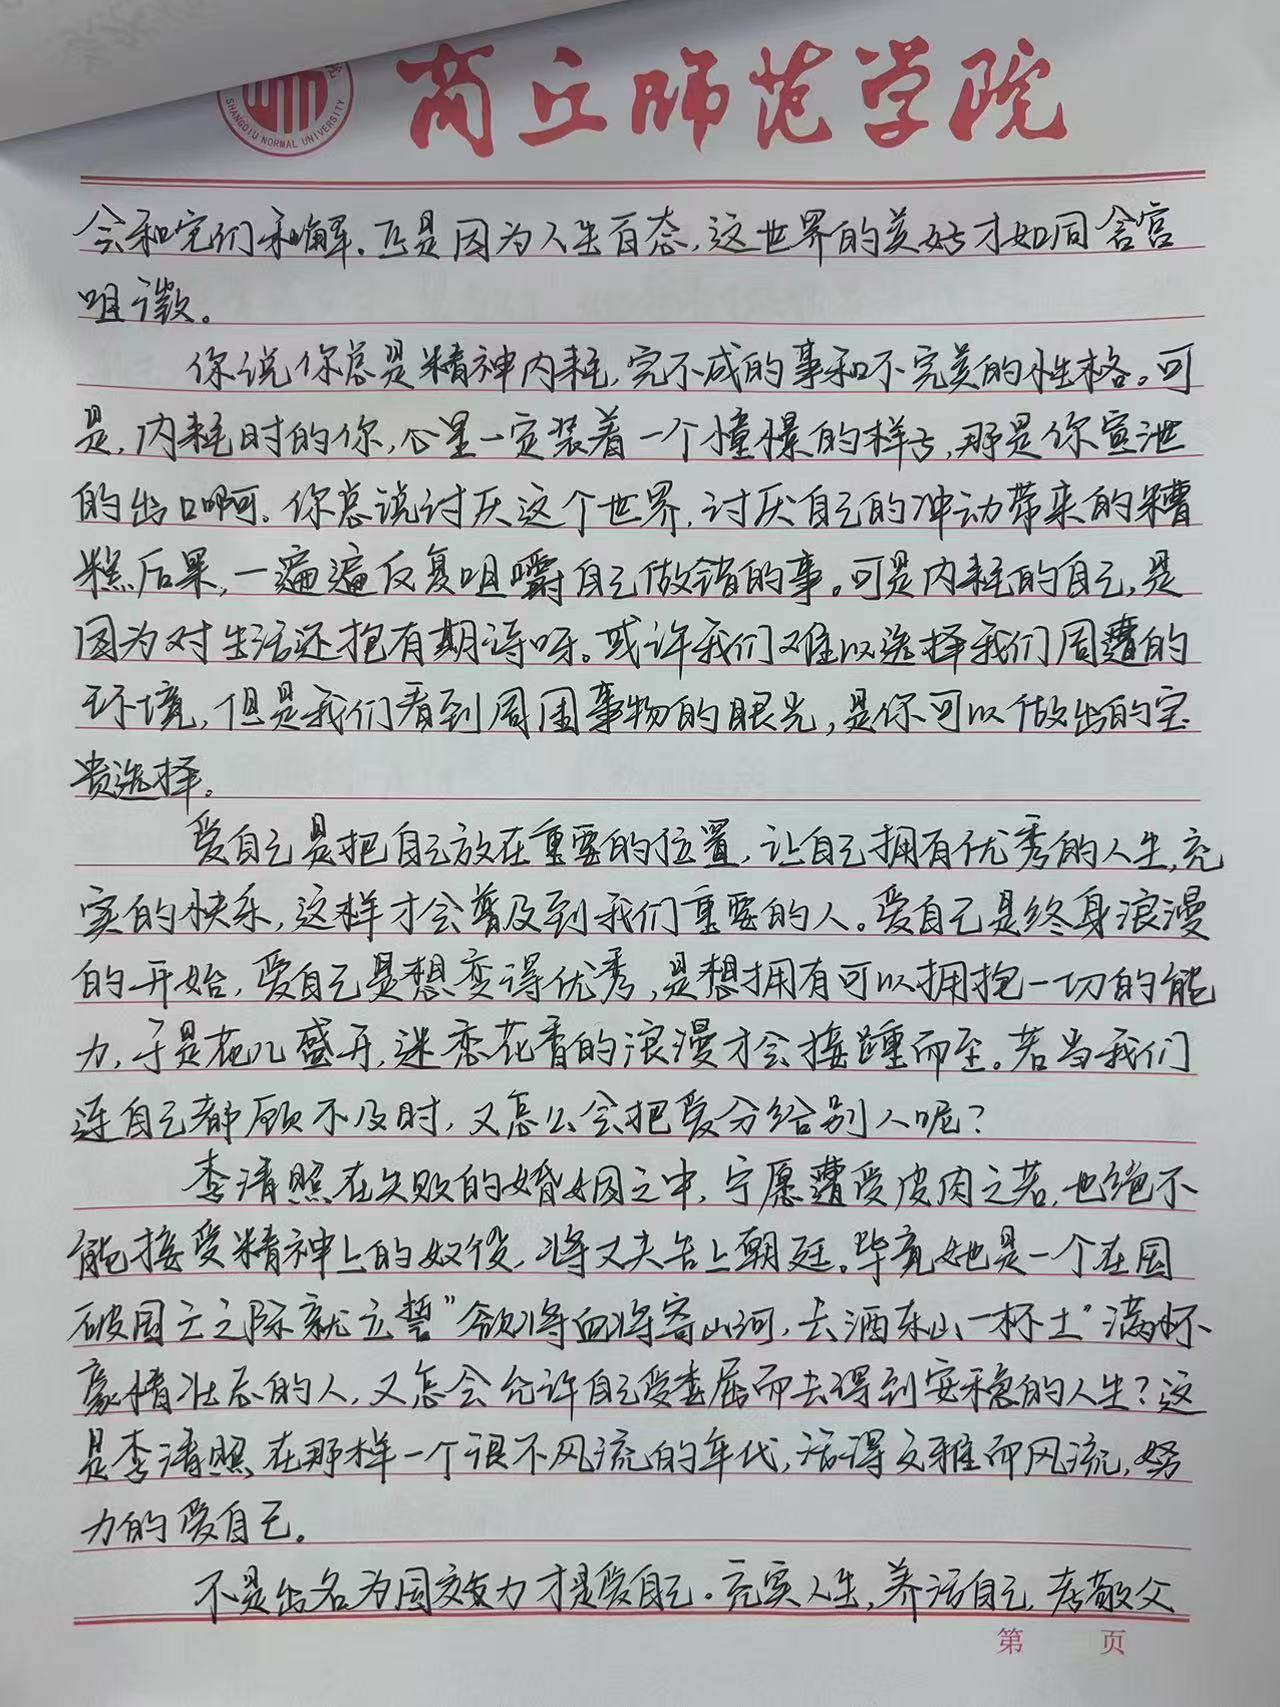 SHANGQIU NORMAL UNIVERSITY
商丘师范学院
会和它们和解。正是因为人生百态，这世界的美好才如同含宫
咀徵。
你说你总是精神内耗，完不成的事和不完美的性格。可
是，内耗时的你，心里一定装着一个憧憬的样子，那是你宣泄
的出口啊。你总说讨厌这个世界，讨厌自己的冲动带来的糟
糕后果，一遍遍反复咀嚼自己做错的事。可是内耗的自己，是
因为对生活还抱有期待呀。或许我们难以选择我们周遭的
环境，但是我们看到周围事物的眼光，是你可以做出的宝
贵选择。
爱自己是把自己放在重要的位置，让自己拥有优秀的人生，充
实的快乐，这样才会普及到我们重要的人。爱自己是终身浪漫
的开始，爱自己是想变得优秀，是想拥有可以拥抱一切的能
力，于是花儿盛开，迷恋花香的浪漫才会接踵而至。若当我们
连自己都顾不及时，又怎么会把爱分给别人呢？
李清照在失败的婚姻之中，宁愿遭受皮肉之苦，也绝不
能接受精神上的奴役，将丈夫告上朝廷。毕竟她是一个在国
破国亡之际就立誓“欲将血将寄山河，去洒东山一杯土”满怀
豪情壮志的人，又怎会允许自己受委屈而去得到安稳的人生？这
是李清照在那样一个很不风流的年代，活得文雅而风流，努
力的爱自己。
不是出名为国效力才是爱自己。充实人生，养活自己，孝敬父
第 页